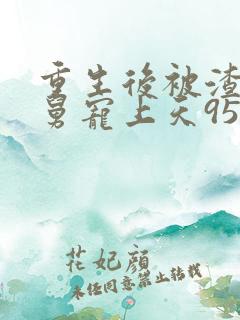 重生後被渣
舅寵上天95
花妃顏
未经同意禁止转载